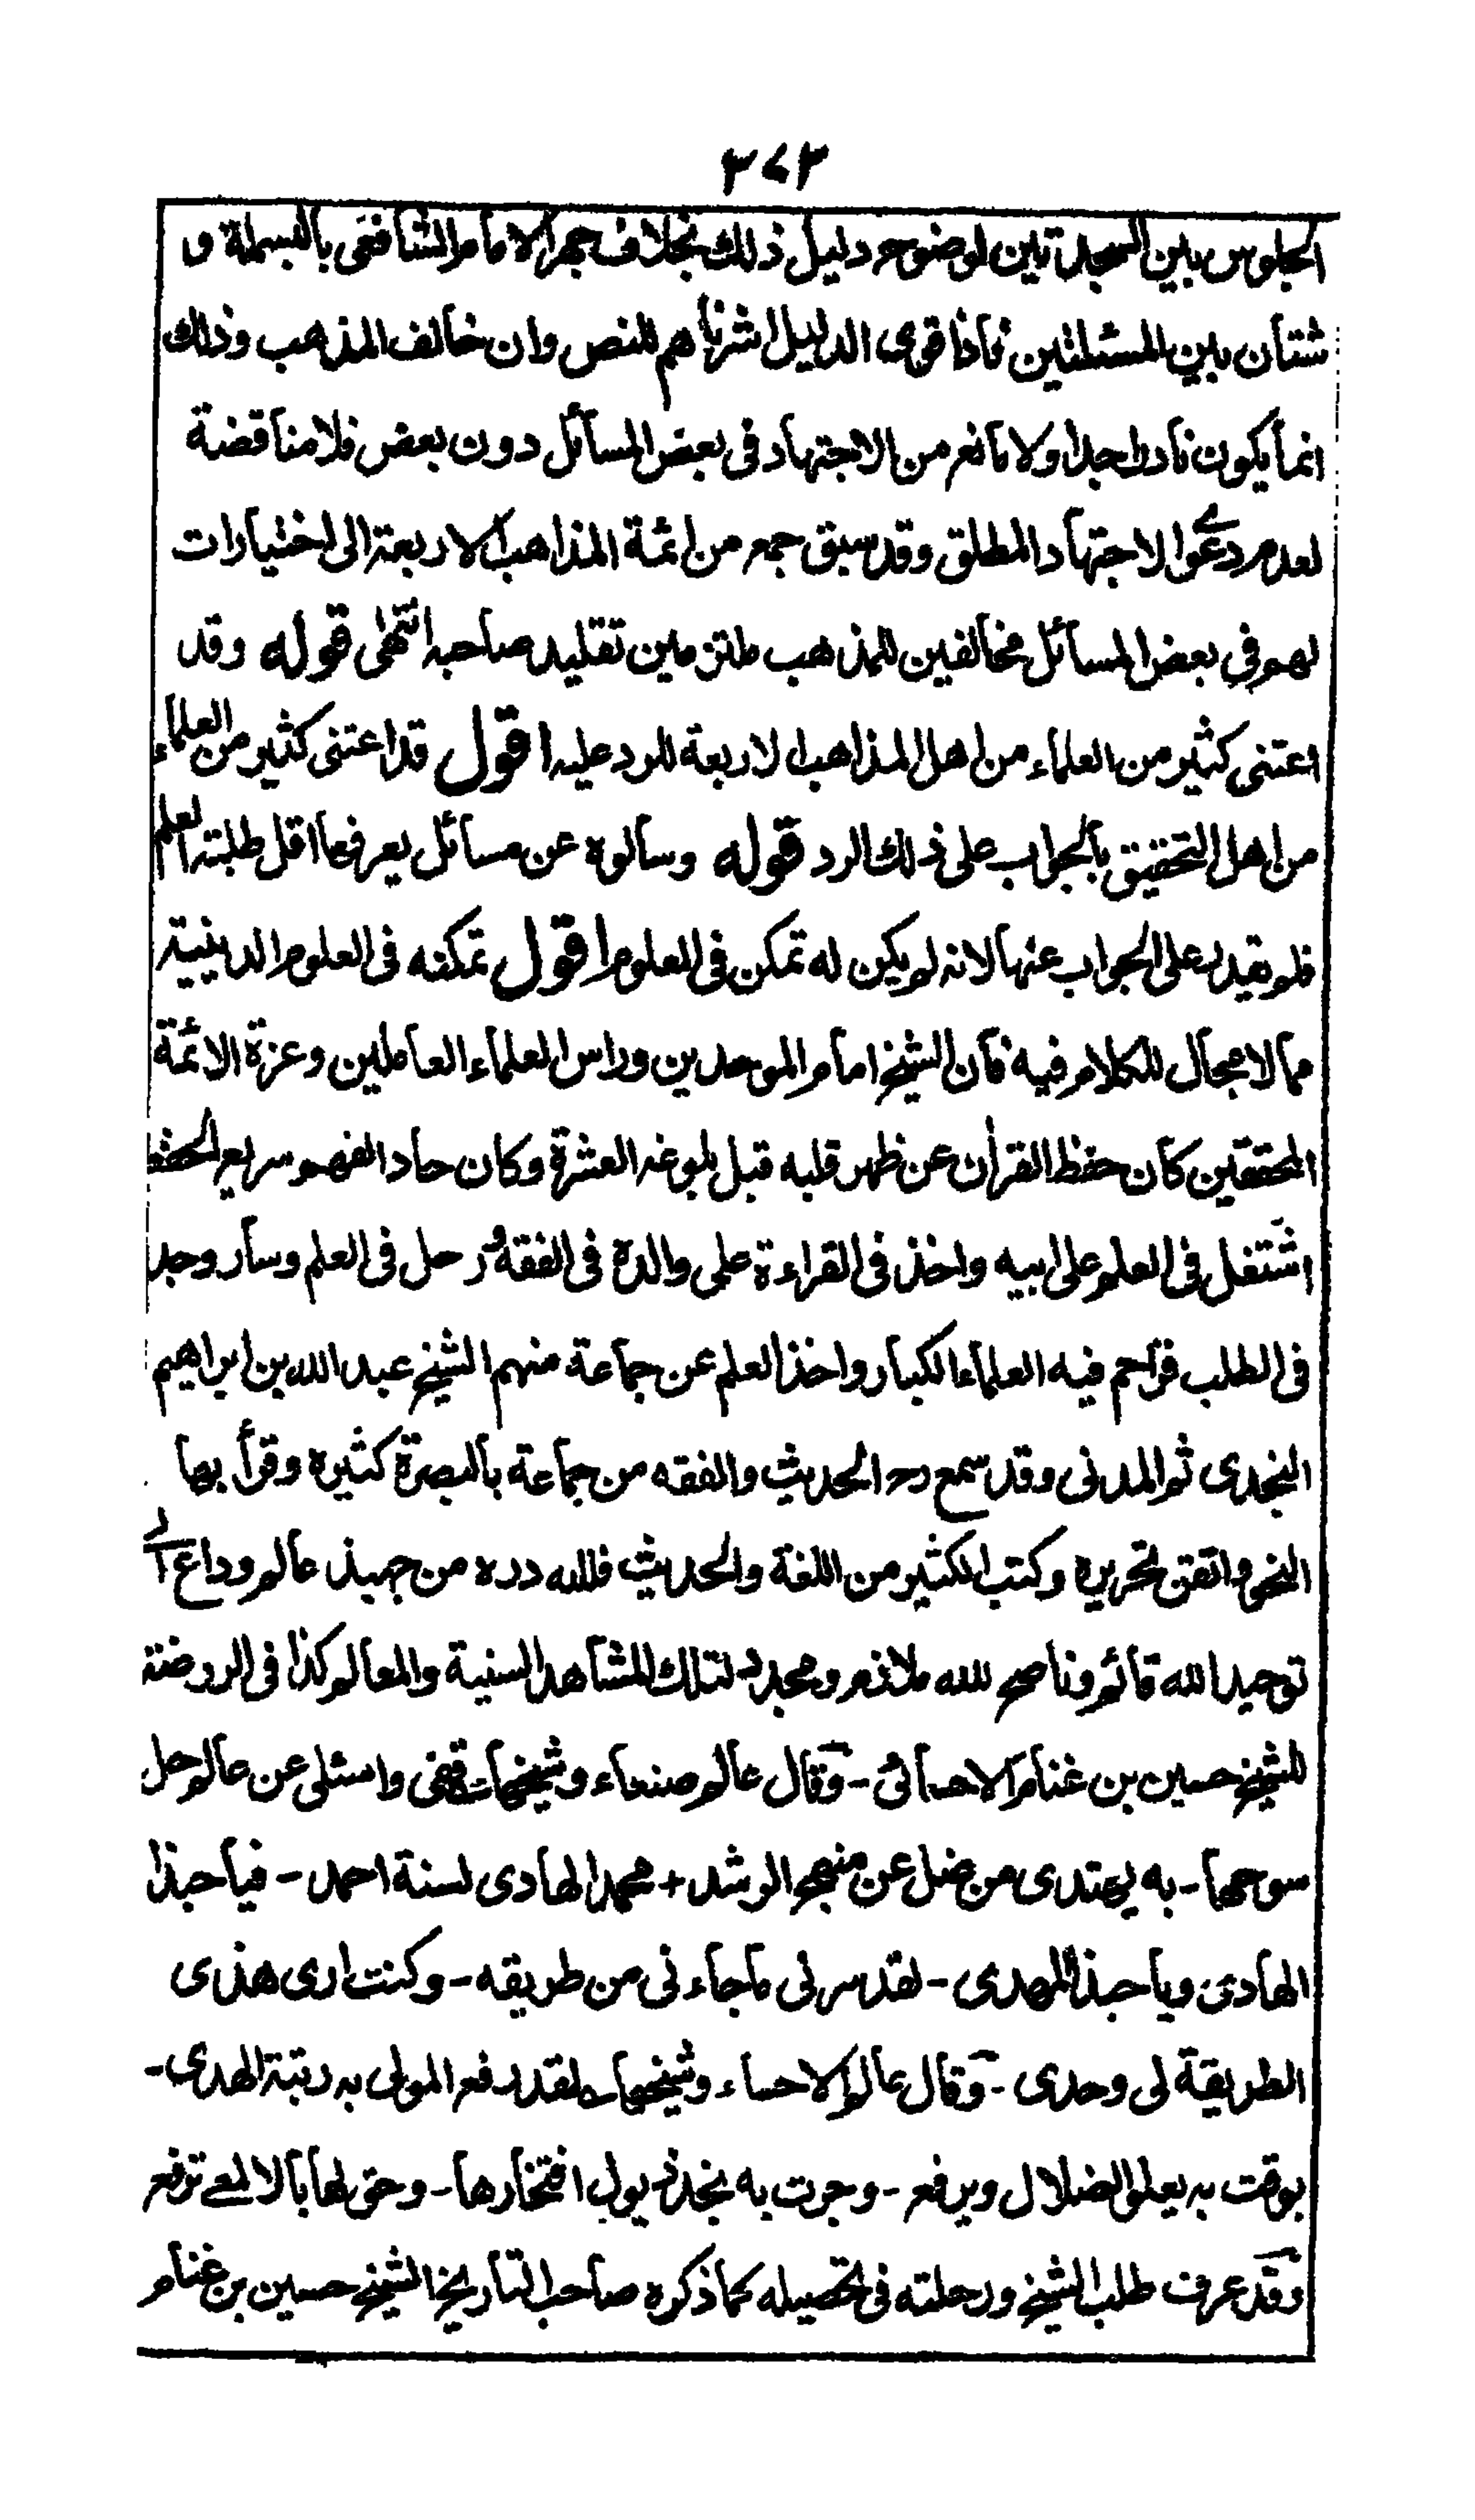 ٣٧٣
الجلوس بين السجدتين لوضوح دليل ذلك بخلاف جهر الامام الشافعى بالبسملة و
شتان بين المسئلتين فاذا قوى الدليل اشرناهم للنص وان خالف المذهب وذلك
انما يكون نادرا جدا ولا مانع من الاجتهاد فى بعض المسائل دون بعض فلا مناقضة
لعدم دعوى الاجتهاد المطلق وقد سبق جمع من ائمة المذاهب الاربعة الى اختيارات
لهم فى بعض المسائل مخالفين للمذهب ملتزمين تقليد صاحبه انتهى قوله وقد
اعتنى كثير من العلماء من اهل المذاهب الاربعة للرد عليه اقول قد اعتنى كثير من العلماء
من اهل التحقيق بالجواب على ذلك الرد قوله وسألوه عن مسائل يعرفها اقل طلبة العلم
فلم يقدر على الجواب عنها لانه لم يكن له تمكن فى العلوم اقول تمكنه فى العلوم الدينية
مما لا مجال للكلام فيه فان الشيخ امام الموحدين وراس العلماء العاملين وغرة الائمة
المحققين كان حفظ القرأن عن ظهر قلبه قبل بلوغه العشرة وكان حاد الفهم سريع الحفظ
اشتغل فى العلم على ابيه واخذ فى القراءة على والده فى الفقه ورحل فى العلم وسار وجد
فى الطلب فزاحم فيه العلماء الكبار واخذ العلم عن جماعة منهم الشيخ عبد الله بن ابراهيم
النجدى ثم المدنى وقد سمع رح الحديث والفقه من جماعة بالبصرة كثيره وقرأ بها
النحو واتقن تحريره وكتب الكثير من اللغة والحديث فلله دره من جهبذ عالم وداع الى
توحيد الله قائم وناصح لله ملازم ومجدد لتلك المشاهد السنية والمعالم كذا فى الروضة
للشيخ حسين بن غنام الاحسائى - وقال عالم صنعاء وشيخها قفى واسئلى عن عالم حل
سوحها - به يهتدى من ضل عن منهج الرشد + محمد الهادى لسنة احمد - فيا حبذا
الهادى ويا حبذا المهدى - لقد سرنى ما جاءنى من طريقه - وكنت ارى هذى
الطريقة لى وحدى - وقال عالم الاحساء وشيخها لقد رفع المولى به رتبة الهدى -
بوقت به يعلو الضلال ويرفع - وجرت به نجد ذيول افتخارها - وحق لها بالالمعى ترفع
وقد عرف طلب الشيخ ورحلته فى تحصيله كما ذكره صاحب التاريخ الشيخ حسين بن غنام